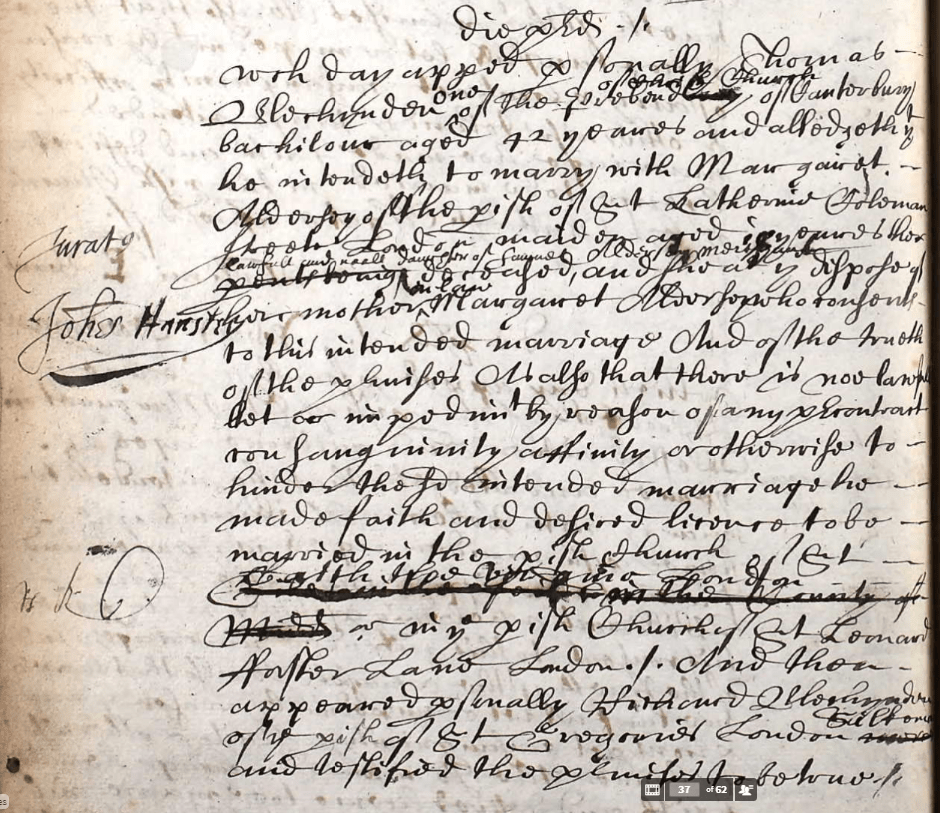 die pred ./.
wch day apped psonally Thomas
Mechynden one of the prebend of Christ Church of Canterbury
bachilour aged 42 yeares and alledgeth yt
he intendeth to marry with Margaret
Aldersey of the pish of St Katherine Coleman
streete London maiden aged yeares her
lawfull and naturall daughter of Samuel Aldersey merchant
pents being deceased, and she at ye dispose of
Jurato
her mother in lawe Margaret Aldersey who consents
Johes Hanslep
to this intended marriage And of the trueth
of the pmises As also that there is noe lawfull
let or impedimt by reason of any precontract
consanguinity affinity or otherwise to
hinder the sd intended marriage he
made faith and desired licence to be
married in the pish Church of St
London
in the County of
Midd or in ye pish Church of St Leonard
Foster Lane London ./. And then
appeared psonally Richard Mechynden
of ye pish of St Gregories London
and testified the pmises to be true ./.
37 of 62